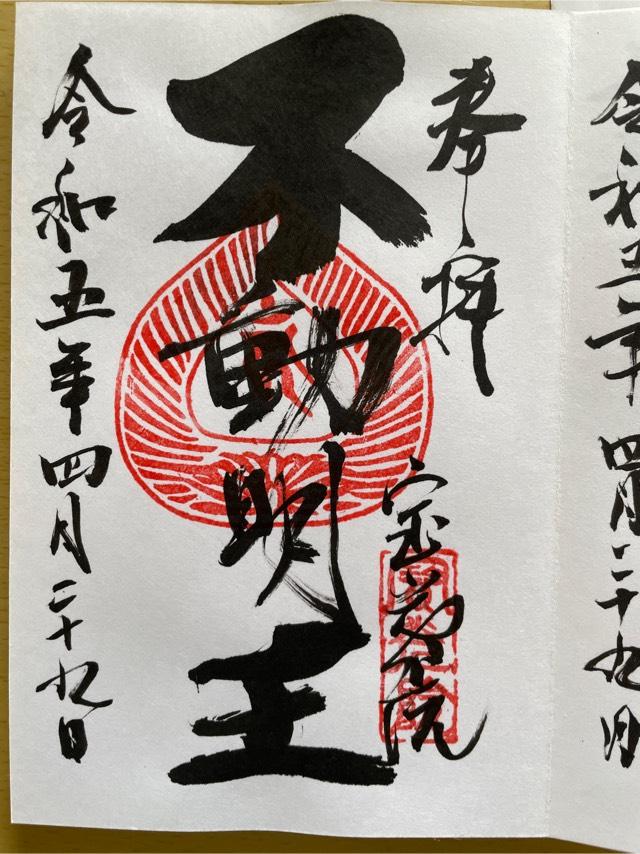 令和五年四月二十九日
奉拝
不動明王
宝 院
令和五年四月二十九日